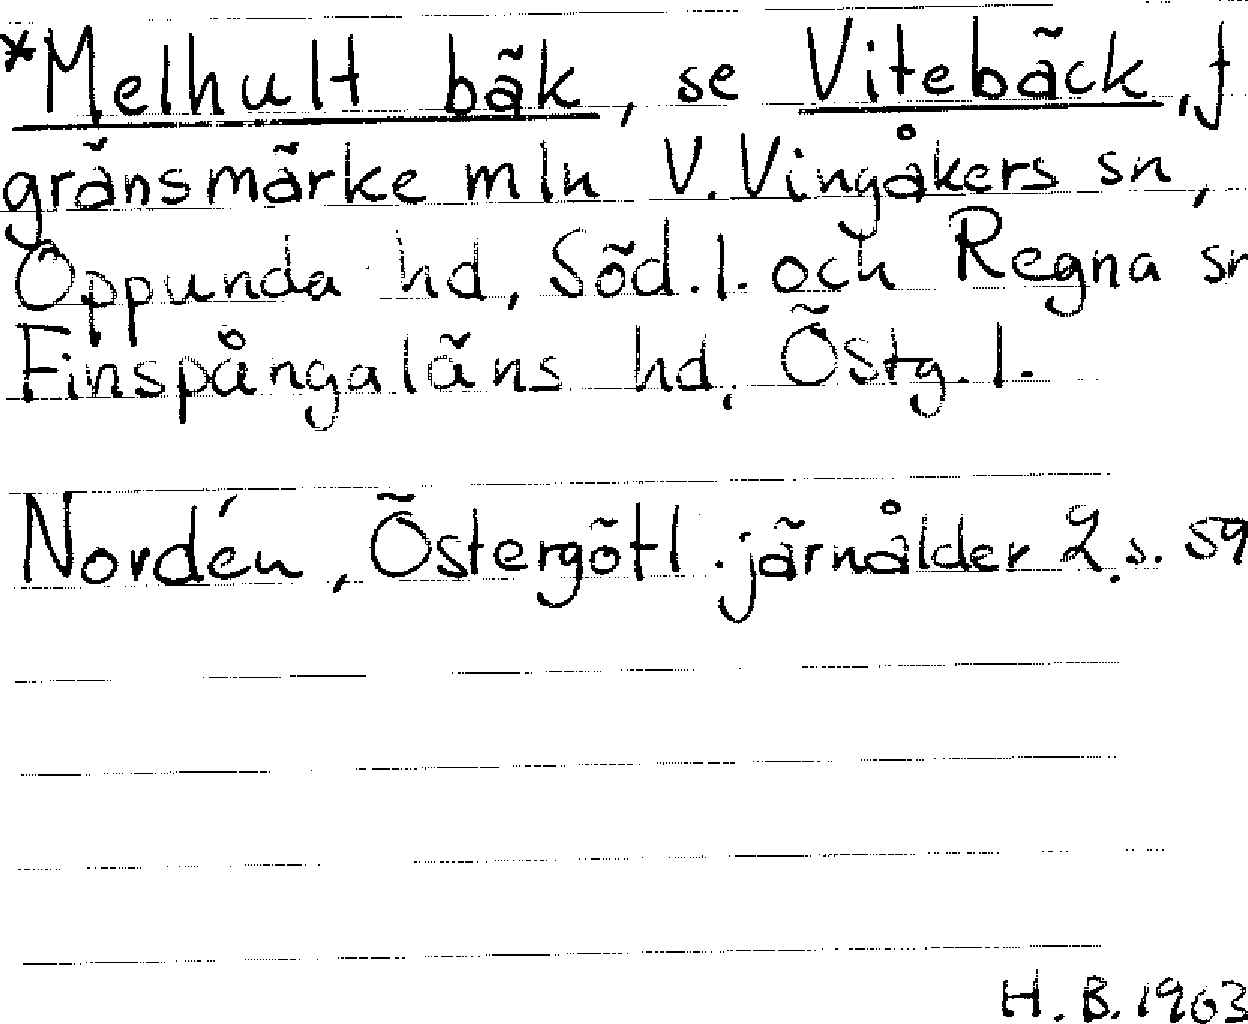 *Melhult bäk, se Vitebäck, f
gränsmärke mln V. Vingåkers sn,
Oppunda hd, Söd. l. och Regna sn
Finspångaläns hd, Östg. l.
Nordén, Östergötl. järnålder 2. s. 59
H. B. 1963